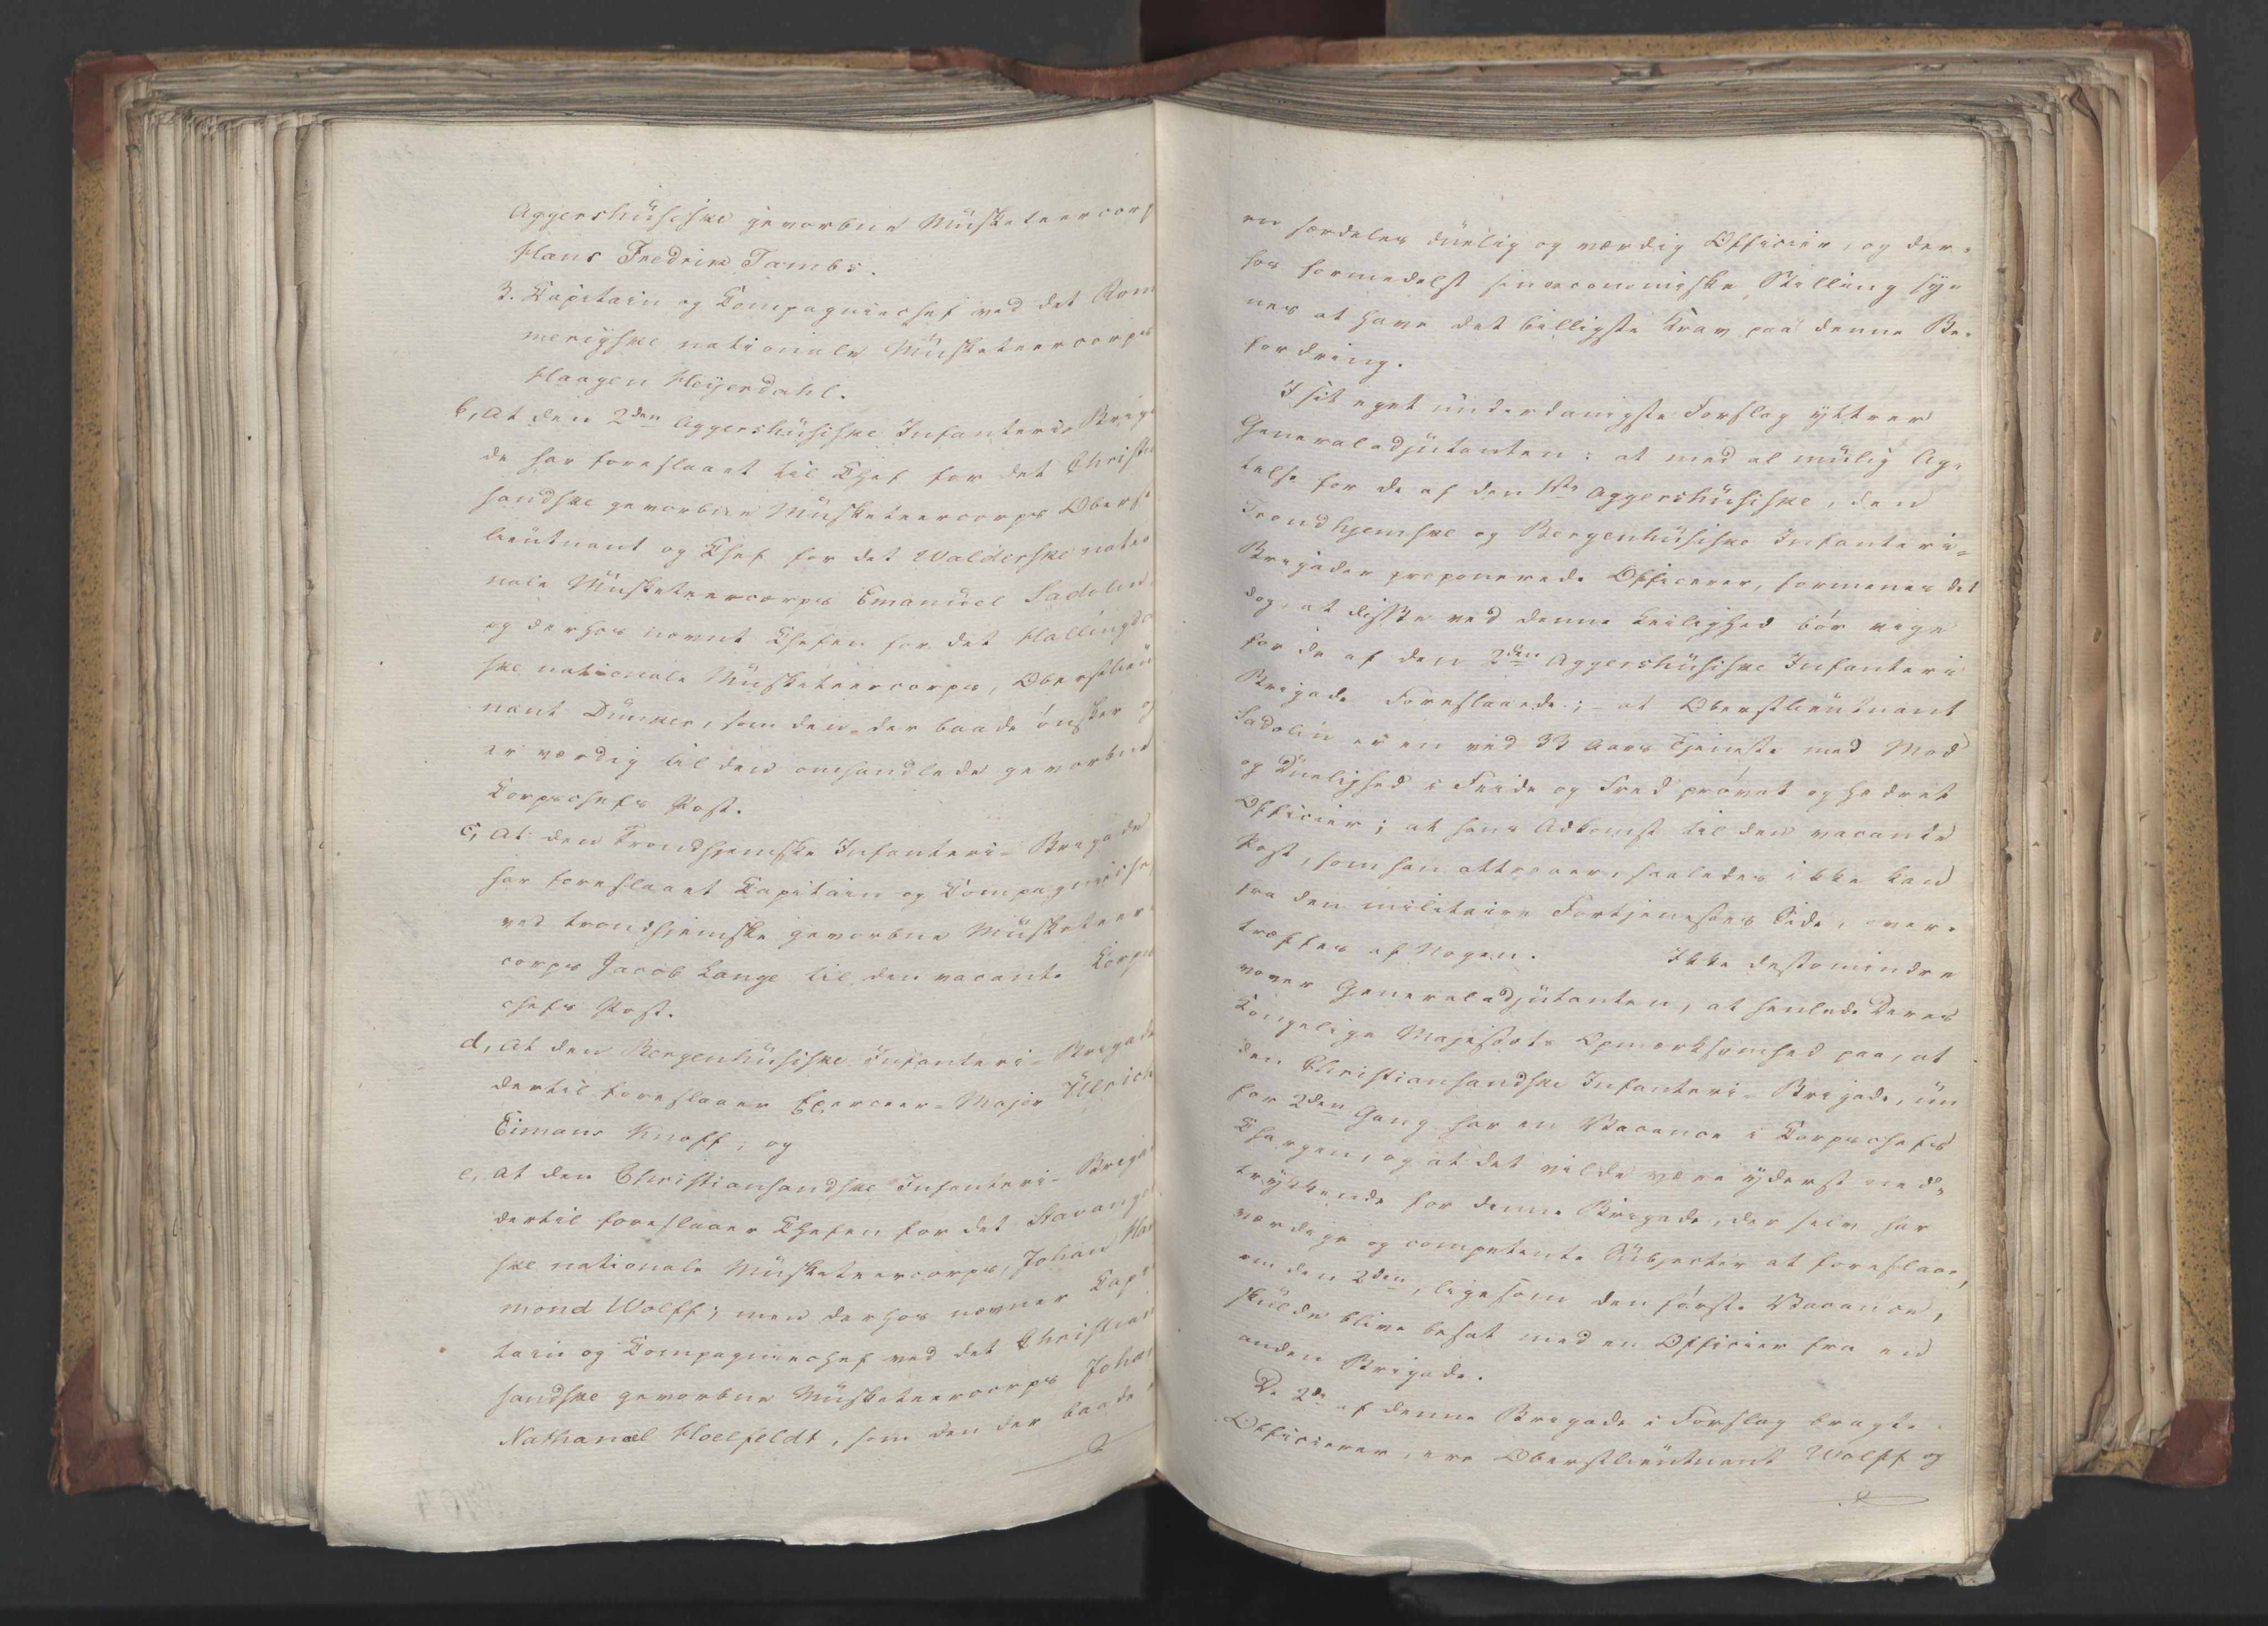 Aggershüsiske gevorbne Müsketeercorps
Hans Fredrik Tambs.
3. Capitain og Compagniechef ved det Rom
merigske nationale Müsketeercorps
Haagen Heyerdahl.
b, At den 2den Aggershüsiske Infanterie Briga
de har foreslaaet til Chef for det Christian
sandske gevorbne Müsketeercorps Oberst
lieutnant og Chef for det Walderske natio
nale Müsketeercorps Emanüel Sadolin,
og derhos nævnt Chefen for det Hallingdal
ske nationale Müsketeercorps, Oberstlieut
nant Dünker, som den, der baade ønsker og
er værdig til den omhandlede gevorbne
Corpschefs Post.
c, At den Trondhjemske Infanteri-Brigade
har foreslaaet Capitain og Compagniechef
ved trondhjemske gevorbne Müsketeer-
corps Jacob Lange til den vacante Corps
chefs Post.
d, At den Bergenhüsiske Infanteri-Brigade
dertil foreslaaer Exerceer-Major Ülrich
Eimans Knoff; og
e, At den Christiansandske Infanteri-Briga
dertil foreslaaer Chefen for det Stavanger
ske nationale Müsketeercorps, Johan Ha
mond Wolff; men derhos nævner Capi
tain og Compagniechef ved det Christian
sandske gevorbne Müsketeercorps Johan
Nathanael Hoelfeldt, som den der baade
en særdeles düelig og værdig Officier, og der-
hos formedelst sin oeconomiske Stilling sy-
nes at have det billigste Krav paa denne Be-
fordring.
I sit eget ünderdanigste Forslag yttrer
Generaladjütanten: at med al mülig Ag-
telse for de af den 1ste Aggershüsiske, den
Trondhjemske og Bergenhüsiske Infanteri-
Brigader proponerede Officerer, formenes det
dog, at disse ved denne Leilighed bør vige
for de af den 2den Aggershüsiske Infanteri
Brigade Foreslaaede; at Oberstlieutnant
Sadolin er en ved 33 Aars Tjeneste med Mod
og Düelighed i Feide og Fred prøvet og hædret
Officier; at hans Adkomst til den vacante
Post, som han attraaer, saaledes ikke kan
fra den militaire Fortjenestes Side, over-
træffes af Nogen. Ikke destomindre
vover Generaladjütanten, at henlede Deres
Kongelige Majestæts Opmærksomhed paa, at
den Christiansandske Infanteri-Brigade, nü
for 2den Gang har en Vacance i Corpschefs
Chargen, og at det vilde være yderst ned-
trykkende for denne Brigade, der selv har
værdige og competente Sübjecter at foreslaae,
om den 2den, ligesom den første Vacance,
skülde blive besat med en Officier fra en
anden Brigade.
De 2de af denne Brigade i Forslag bragte
Officierer, ere Oberstlieutnant Wolff og